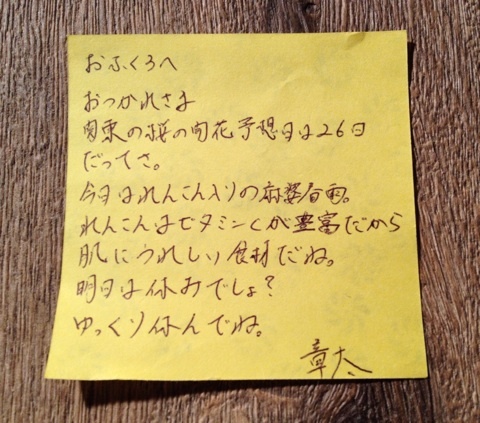 おふくろへ
おつかれさま
関東の桜の開花予想日は26日
だってさ。
今日はれんこん入りの麻婆春雨。
れんこんはビタミンCが豊富だから
肌にうれしい食材だね。
明日は休みでしょ?
ゆっくり休んでね。
章太